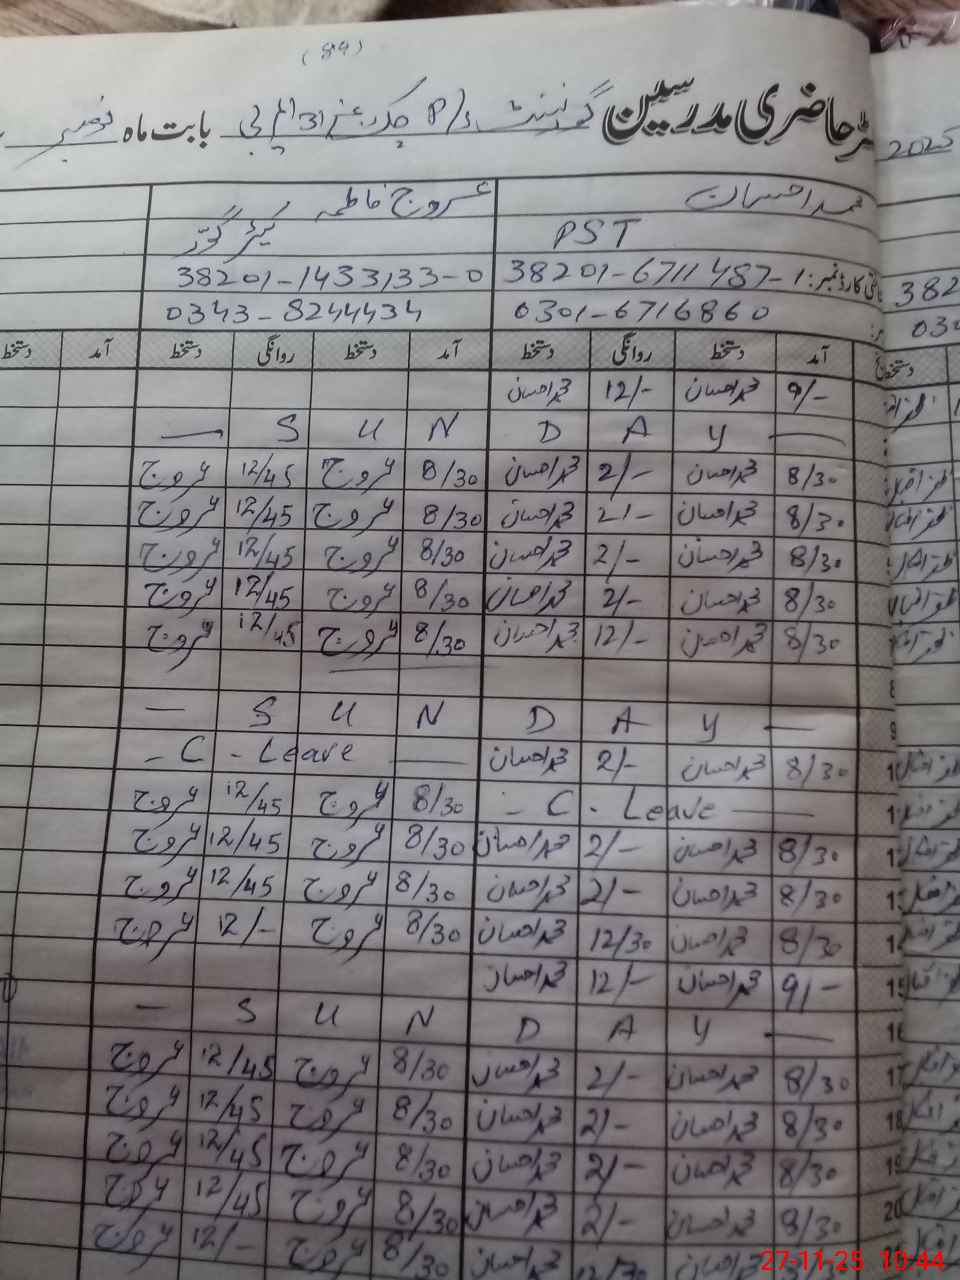 (84)
رجسٹر حاضری مدرسین گورنمنٹ P/S چک نمبر 31 بابت ماہ نومبر 2025
محمد احسان عروج فاطمہ
PST کیئر گور
شناختی کارڈ نمبر: 38201-6711487-1 38201-1433133-0 382
0301-6716860 0343-8244434 030
آمد دستخط روانگی دستخط آمد دستخط روانگی دستخط آمد دستخط
9/- محمد احسان 12/- محمد احسان
— S U N D A Y —
8/30 محمد احسان 2/- محمد احسان 8/30 عروج 12/45 عروج
8/30 محمد احسان 2/- محمد احسان 8/30 عروج 12/45 عروج
8/30 محمد احسان 2/- محمد احسان 8/30 عروج 12/45 عروج
8/30 محمد احسان 2/- محمد احسان 8/30 عروج 12/45 عروج
8/30 محمد احسان 12/- محمد احسان 8/30 عروج 12/45 عروج
8
9 — S U N D A Y —
10 8/30 محمد احسان 2/- محمد احسان - C - Leave —
8/30 عروج 12/45 عروج - C - Leave —
8/30 محمد احسان 2/- محمد احسان 8/30 عروج 12/45 عروج
8/30 محمد احسان 2/- محمد احسان 8/30 عروج 12/45 عروج
8/30 محمد احسان 12/30 محمد احسان 8/30 عروج 12/- عروج
15 9/- محمد احسان 12/- محمد احسان
16 — S U N D A Y —
17 8/30 محمد احسان 2/- محمد احسان 8/30 عروج 12/45 عروج
18 8/30 محمد احسان 2/- محمد احسان 8/30 عروج 12/45 عروج
19 8/30 محمد احسان 2/- محمد احسان 8/30 عروج 12/45 عروج
20 8/30 محمد احسان 2/- محمد احسان 8/30 عروج 12/45 عروج
محمد احسان 12/30 محمد احسان 8/30 عروج 12/- عروج
27-11-25 10:44